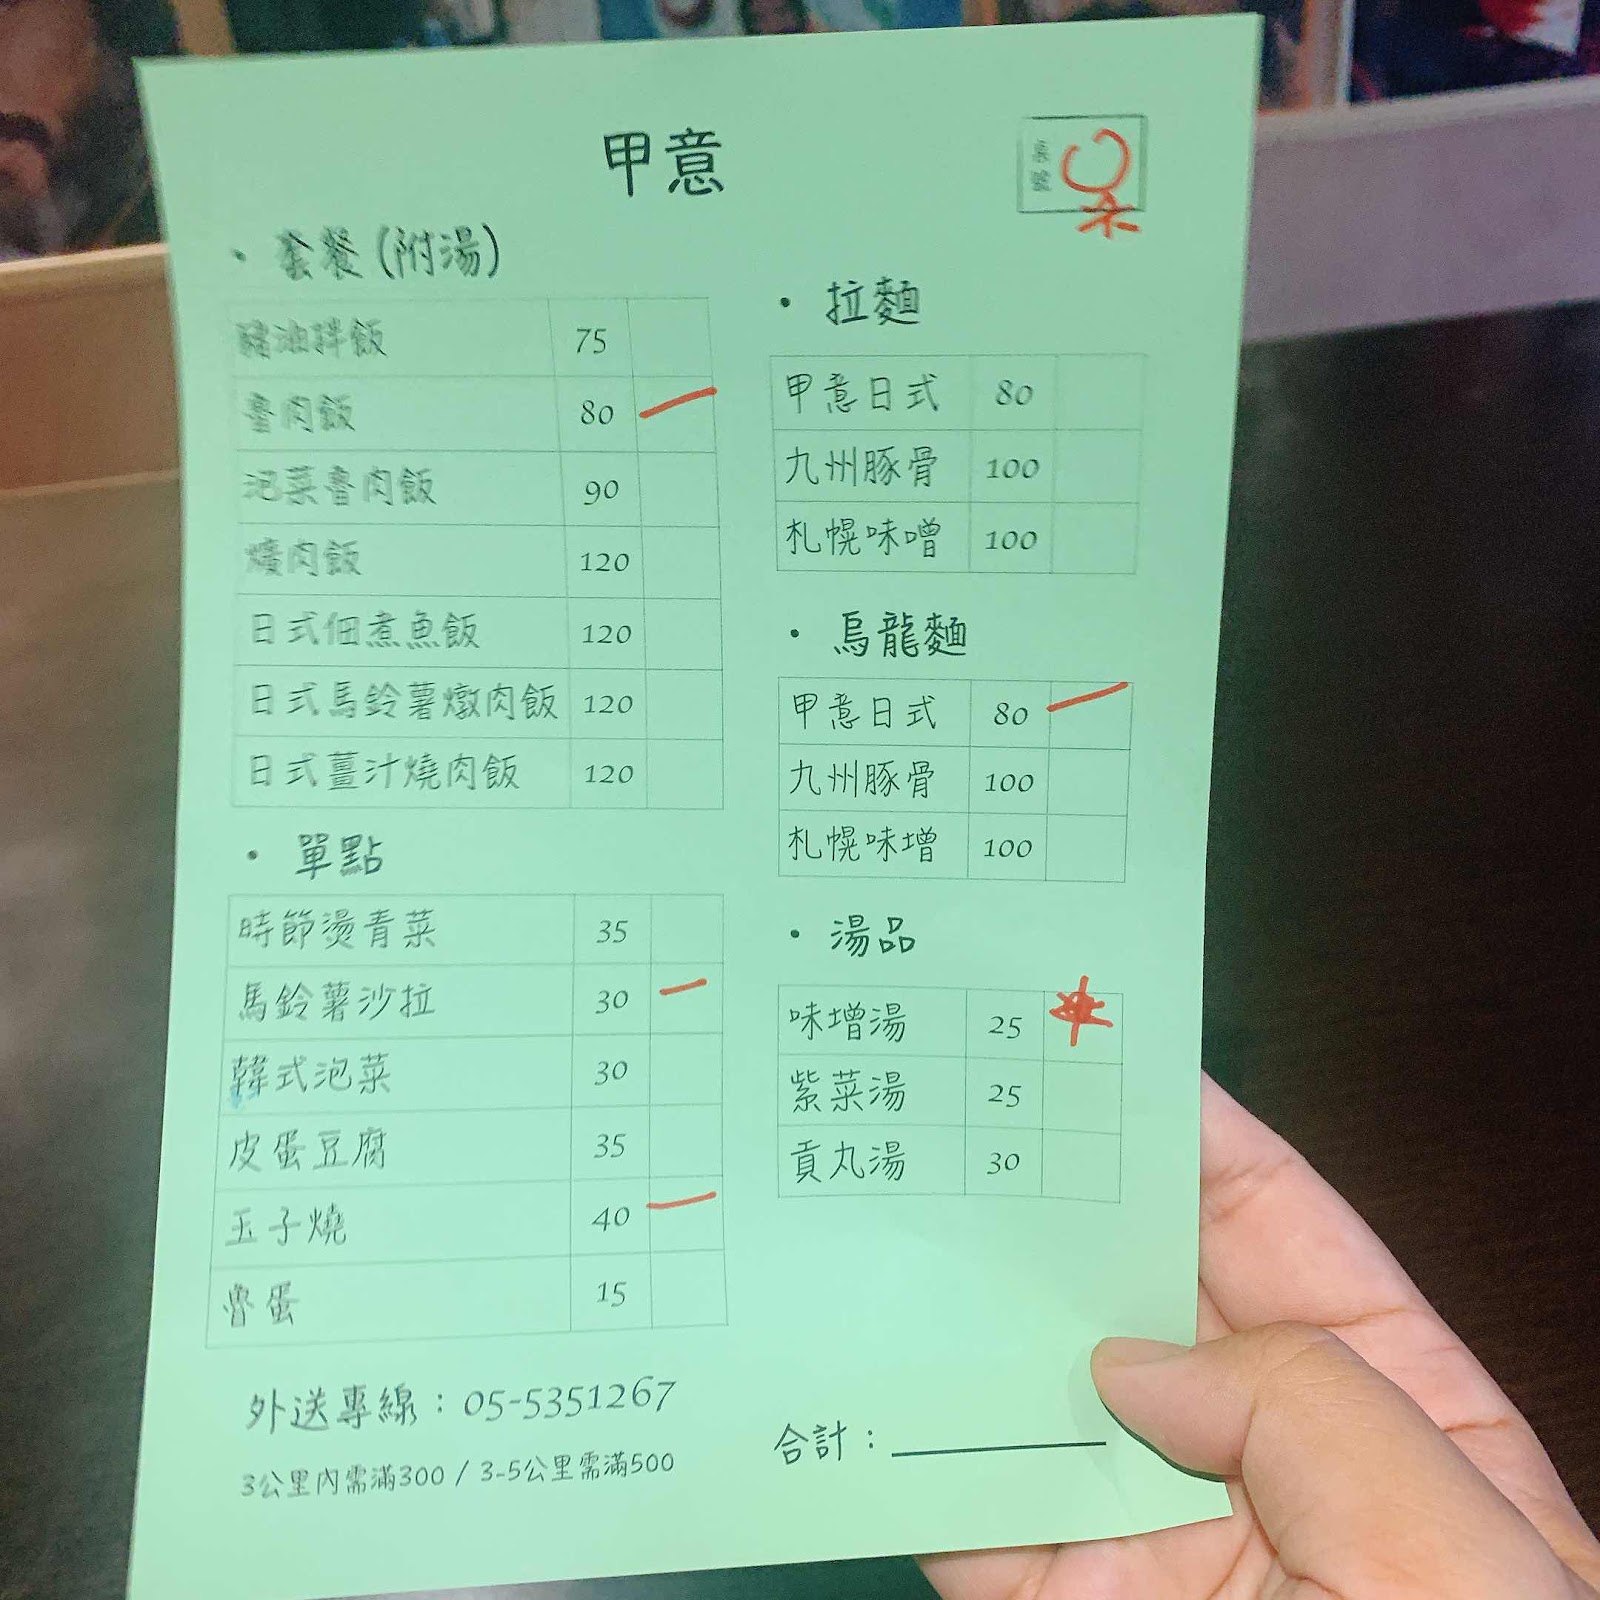 甲意
桌號
• 套餐(附湯)
豬油拌飯 75
魯肉飯 80
泡菜魯肉飯 90
爌肉飯 120
日式佃煮魚飯 120
日式馬鈴薯燉肉飯 120
日式薑汁燒肉飯 120
• 單點
時節燙青菜 35
馬鈴薯沙拉 30
韓式泡菜 30
皮蛋豆腐 35
玉子燒 40
魯蛋 15
外送專線：05-5351267
3公里內需滿300 / 3-5公里需滿500
• 拉麵
甲意日式 80
九州豚骨 100
札幌味噌 100
• 烏龍麵
甲意日式 80
九州豚骨 100
札幌味增 100
• 湯品
味增湯 25
紫菜湯 25
貢丸湯 30
合計：